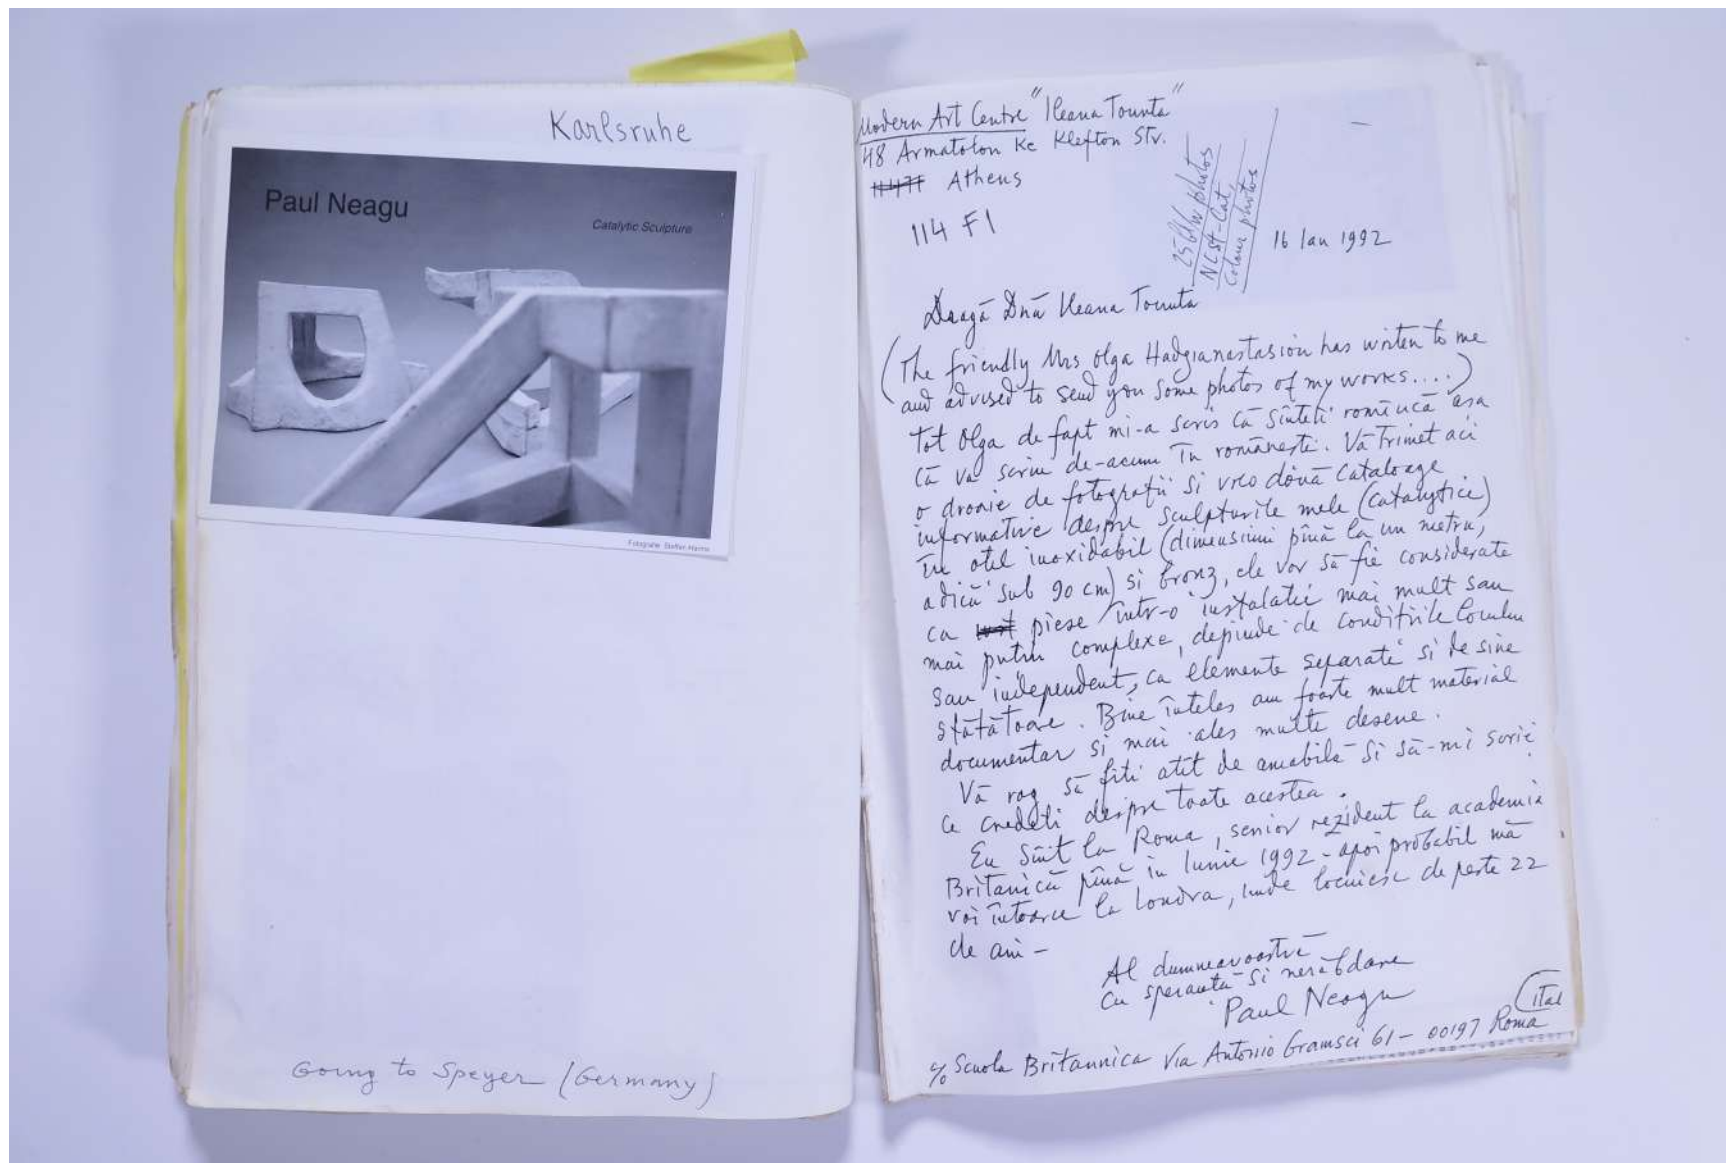 Karlsruhe
Paul Neagu
Catalytic Sculpture
Fotografie Steffen Harms
Going to Speyer (Germany)
Modern Art Centre "Ileana Tounta"
48 Armatolon Ke Klefton Str.
11471 Athens
114 F1
25 b/w photos
NCSt-Cat,
Colour photos
16 Ian 1992
Dragă Dnă Ileana Tounta
(The friendly Mrs Olga Hadgianastasiou has writen to me
and advised to send you some photos of my works....)
Tot Olga de fapt mi-a scris că sînteti româncă asa
că va scriu de-acum în românește. Vă trimet aci
o droaie de fotografii si vreo două cataloage
informative despre sculpturile mele (catalytice)
în otel inoxidabil (dimensiuni pînă la un metru,
adică sub 90 cm) si bronz, ele vor să fie considerate
ca piese într-o instalatie mai mult sau
mai putin complexe, depinde de conditiile locului
sau independent, ca elemente separate si de sine
stătătoare. Bine înteles am foarte mult material
documentar si mai ales multe desene.
Vă rog să fiti atît de amabilă si să-mi scrie
ce credeti despre toate acestea.
Eu sînt la Roma, senior rezident la academia
Britanică pînă in Iunie 1992 - apoi probabil mă
voi întoarce la Londra, unde locuiesc de peste 22
de ani -
Al dumneavoastră
cu sperantă si nerăbdare
Paul Neagu
Ital
c/o Scuola Britannica Via Antonio Gramsci 61 - 00197 Roma